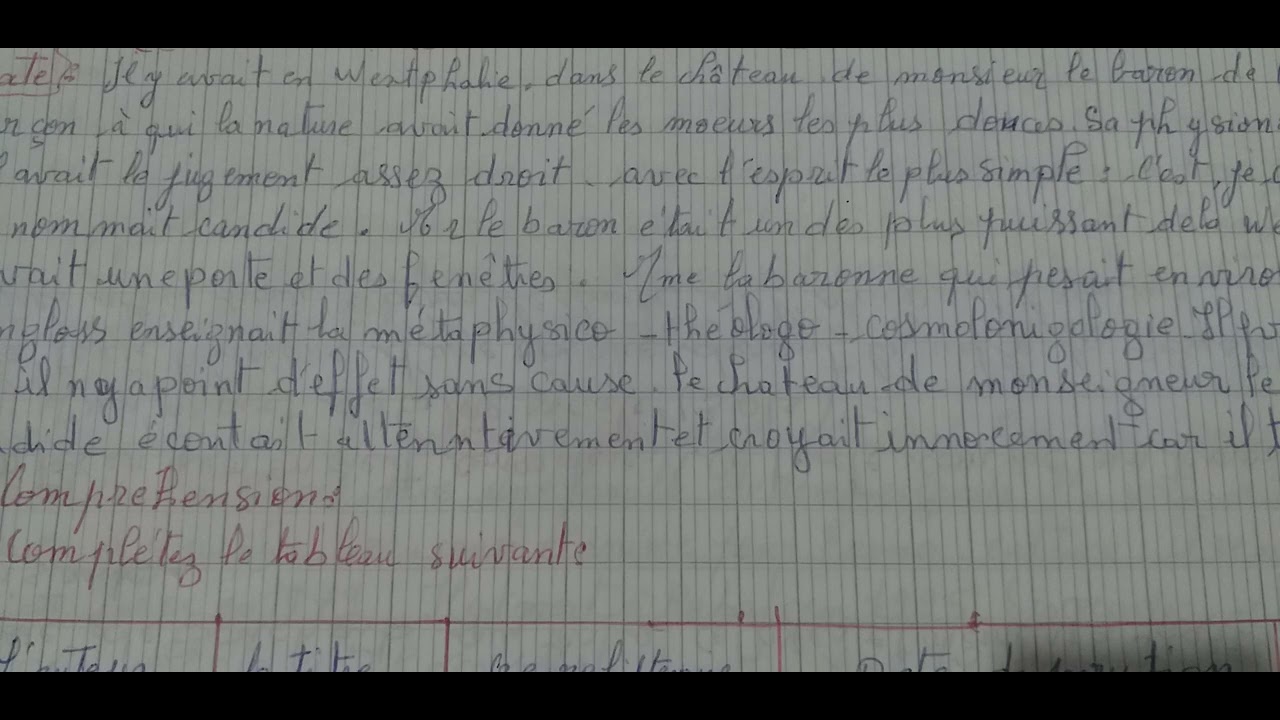 xte : Il y avait en Westphalie, dans le château de monsieur le baron de
rçon à qui la nature avait donné les moeurs les plus douces. Sa physion
avait le jugement assez droit avec l'esprit le plus simple : c'est, je
nommait candide. le baron était un des plus puissant dela we
vait une porte et des fenêtres. Mme la baronne qui pesait enviro
ngloss enseignait la métaphysico-théologo-cosmolonigologie. Il
il n'y a point d'effet sans cause, le chateau de monseigneur le
dide écoutait attenntivement et croyait innocement car il t
Comprehension :
Complétez le tableau suivante
l'auteur la titre Date